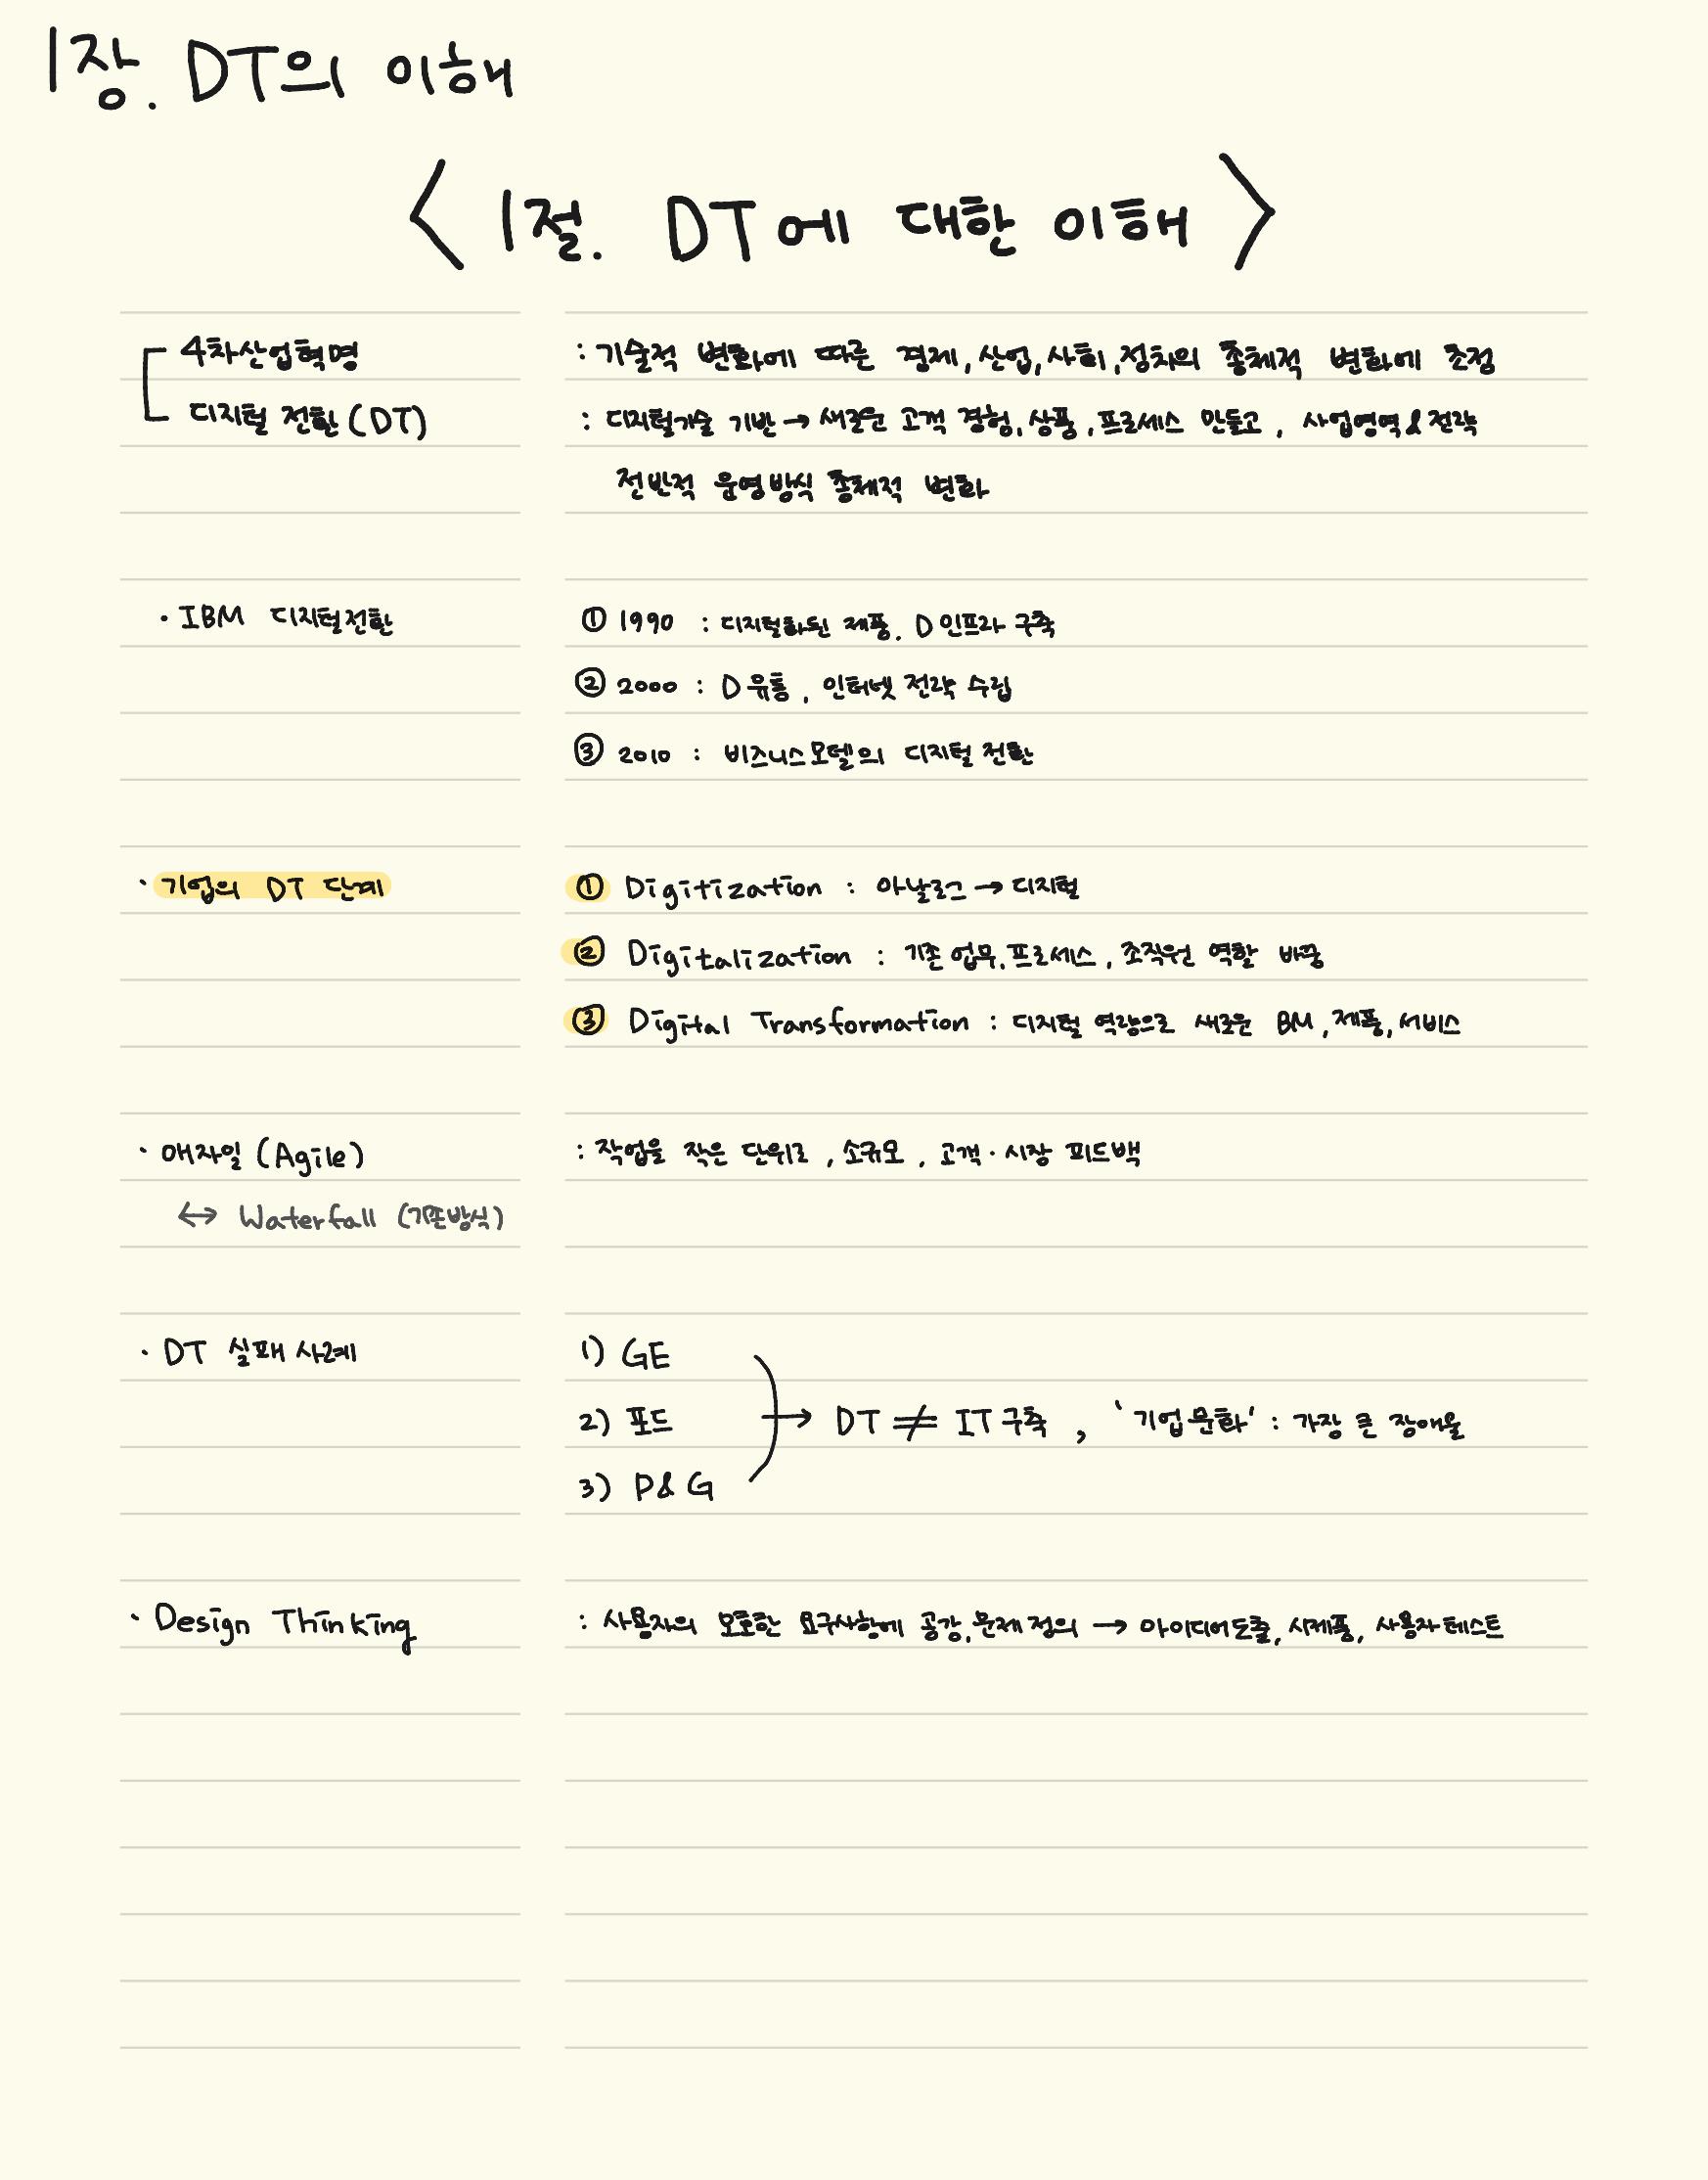 1장. DT의 이해
< 1절. DT에 대한 이해 >
4차산업혁명 : 기술적 변화에 따른 경제, 산업, 사회, 정치의 총체적 변화에 초점
디지털 전환(DT) : 디지털기술 기반 → 새로운 고객 경험, 상품, 프로세스 만들고, 사업영역&전략
전반적 운영방식 총체적 변화
· IBM 디지털전환 ① 1990 : 디지털화된 제품. D인프라 구축
② 2000 : D유통, 인터넷 전략 수립
③ 2010 : 비즈니스모델의 디지털 전환
· 기업의 DT 단계 ① Digitization : 아날로그 → 디지털
② Digitalization : 기존 업무, 프로세스, 조직원 역할 바꿈
③ Digital Transformation : 디지털 역량으로 새로운 BM, 제품, 서비스
· 애자일 (Agile) : 작업을 작은 단위로, 소규모, 고객·시장 피드백
↔ Waterfall (기존방식)
· DT 실패 사례 1) GE
2) 포드 → DT ≠ IT 구축, '기업문화' : 가장 큰 장애물
3) P&G
· Design Thinking : 사용자의 모호한 요구사항에 공감, 문제 정의 → 아이디어도출, 시제품, 사용자테스트